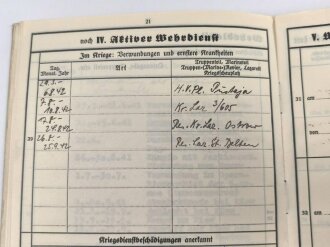 21
noch IV. Aktiver Wehrdienst
Im Kriege: Verwundungen und ernstere Krankheiten
Tag, Monat, Jahr
Art
Truppenteil, Marineteil
Truppen-(Marine-)Revier, Lazarett
Kriegsschauplatz
29.3.-
6.8.42
H.V.Pl.
7.8.-
16.8.42
Kr. Laz. 3/605
17.8.-
24.8.42
Res. Kr. Laz. Ostrow
39
26.8.-
25.9.42
Res. Laz. St. Pölten
Kriegsdienstbeschädigungen anerkannt
V.
31
32